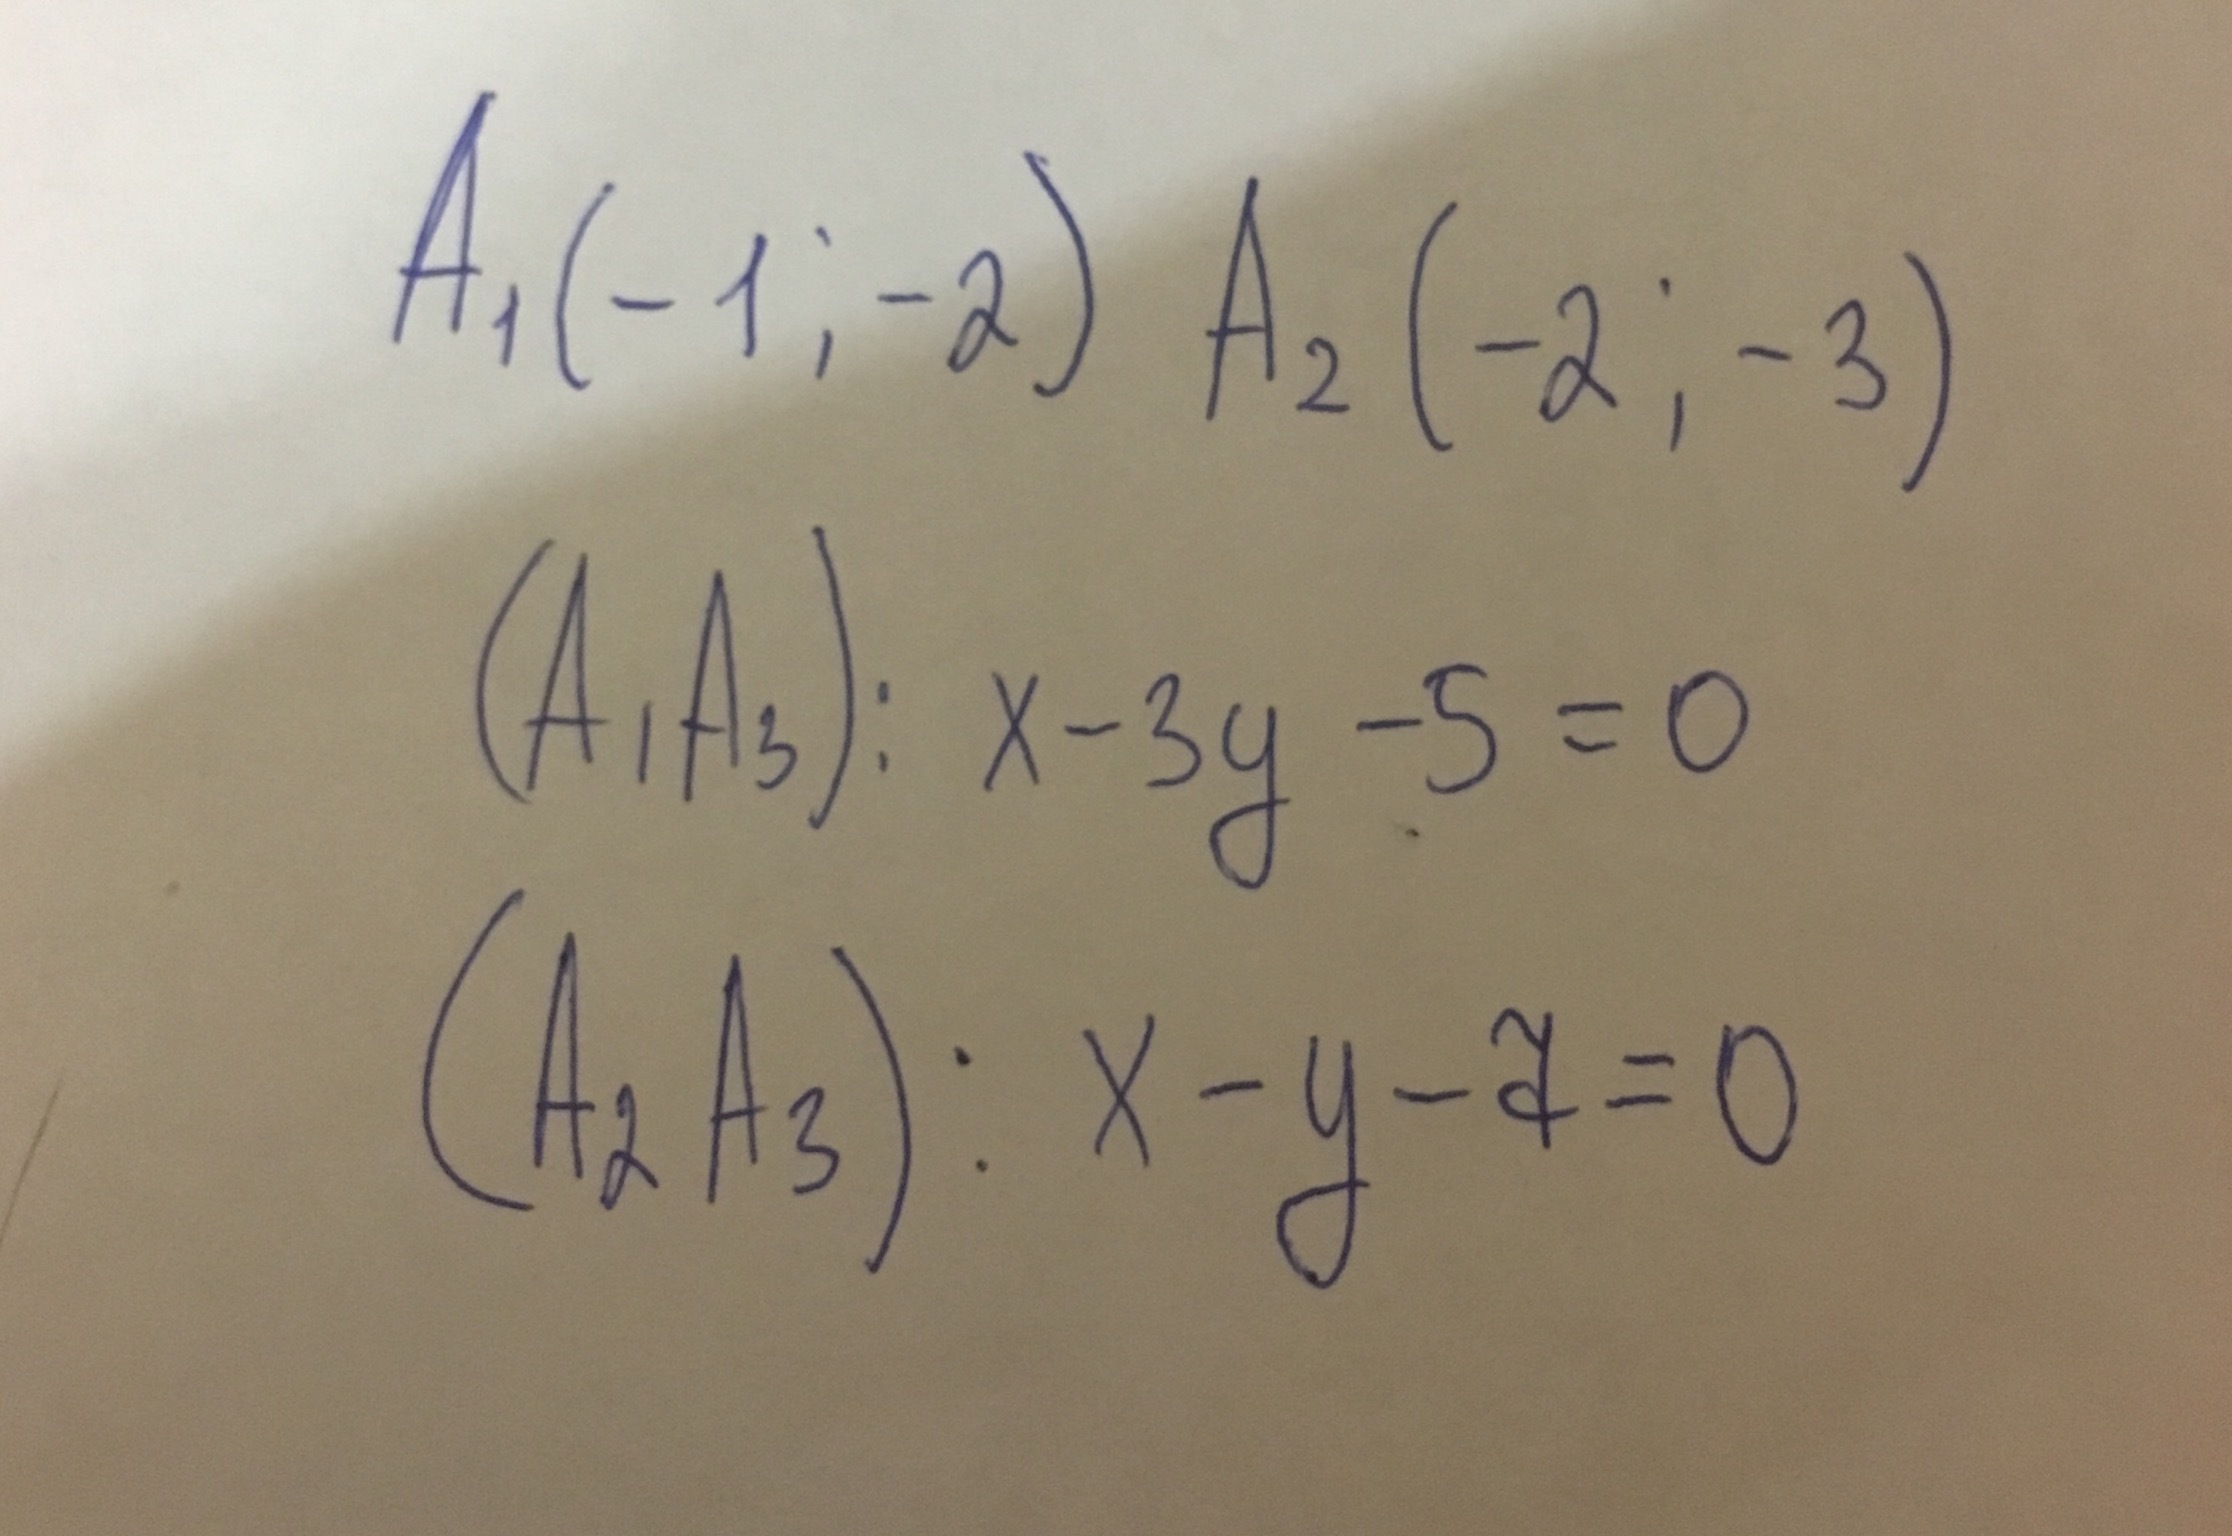 A₁(-1; -2) A₂(-2; -3)
(A₁A₃): x-3y-5=0
(A₂A₃): x-y-7=0